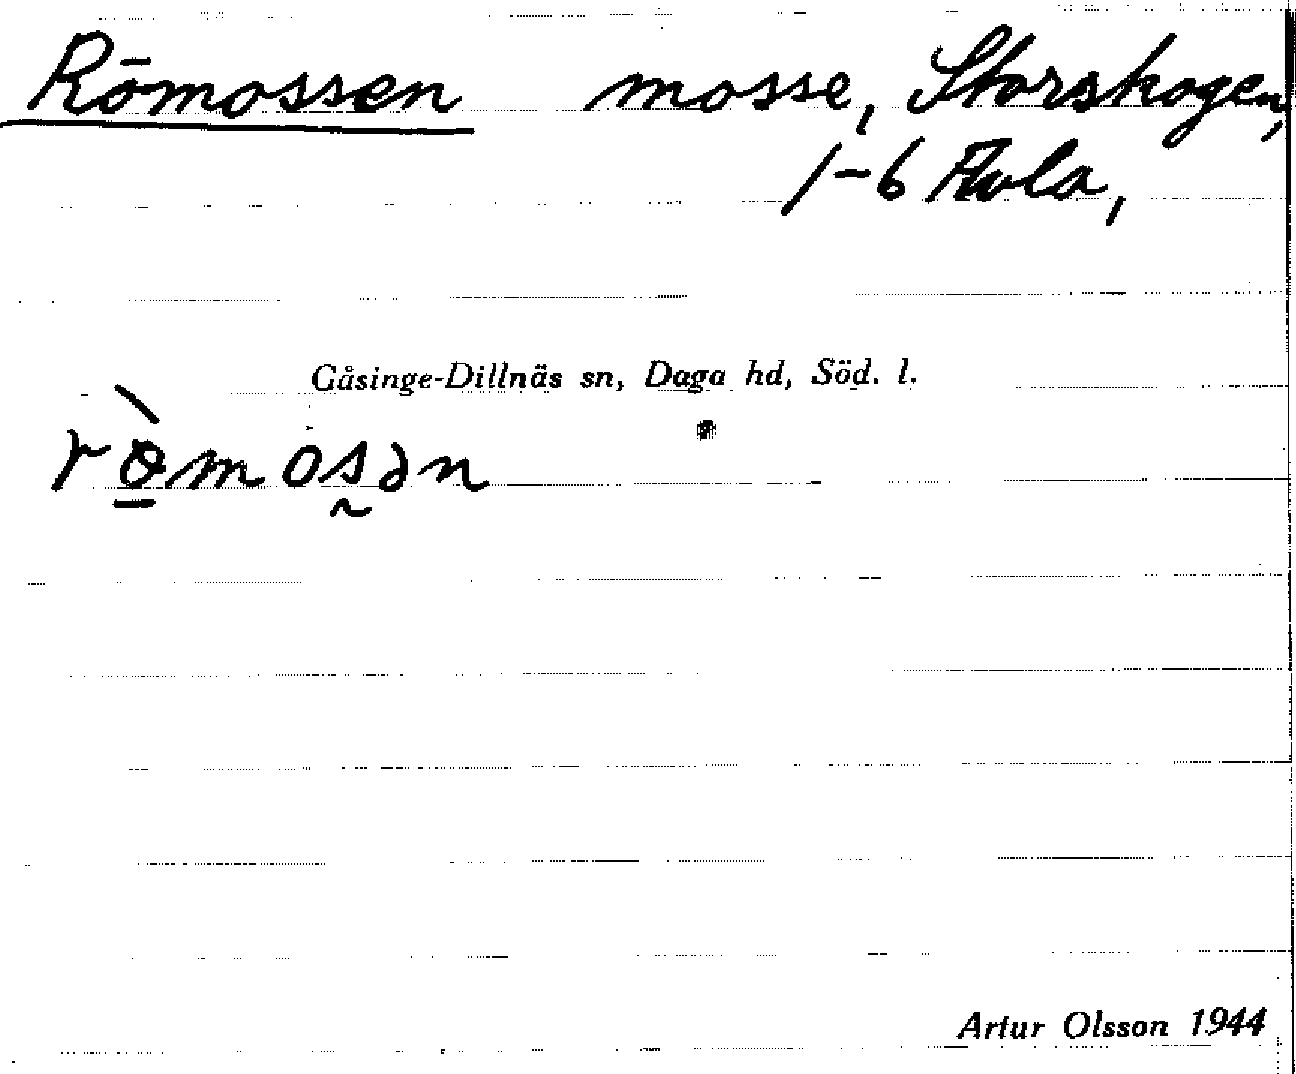 Römossen mosse, Storskogen,
1-6 Åvla,
Gåsinge-Dillnäs sn, Daga hd, Söd. l.
Artur Olsson 1944